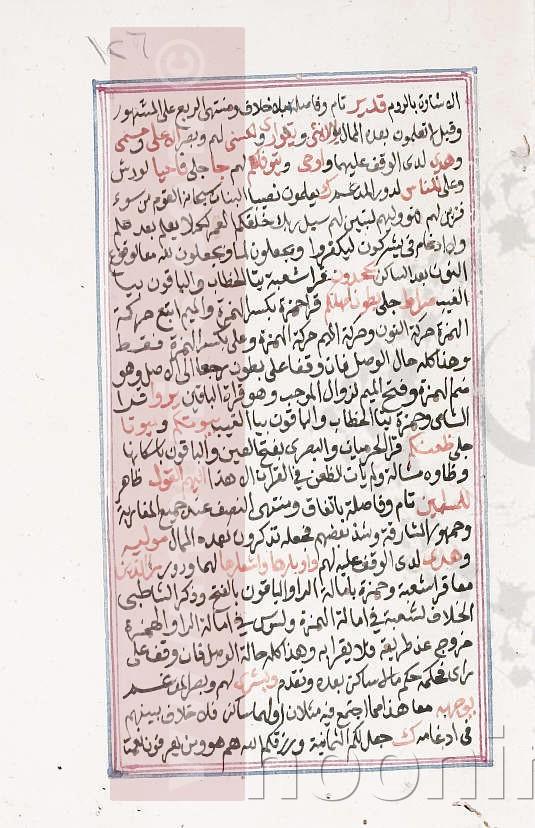 ١٤٦
الاشارة بالروم قدير تام وفاصلة بلا خلاف ومنتهى الربع على المشهور
وقيل تعلمون بعده الممال مولى لهم وبصرى اعمى
وهدى لدى الوقف عليهما واوحى ويتوفيكم لهم جا جلى فاحيا لورش
وعلى الناس لدور المدغم ك يعلمون نصيبا البنات سبحانه القوم من سوء
فزين لهم فهو وليهم لتبين لهم سبل ربك خلقكم العمر لكيلا يعلم بعد علم
ولا ادغام فى بشركون ليكفروا ويجعلون لما ويجعلون لله ما لوقوع
النون بعد الساكن يجحدون قرا شعبة بتا الخطاب والباقون بيا
الغيب صراط جلى بطون امهاتكم قرا حمزة بكسر الهمزة والميم اتبع حركة
الهمزة حركة النون وحركة الميم حركة الهمزة وعلى بكسر الهمزة فقط
وهذا كله حال الوصل فان وقفا على بطون رجعا الى الاصل وهو
ضم الهمزة وفتح الميم لزوال الموجب وهو قراة الباقين يروا قرا
الشامى وحمزة بتا الخطاب والباقون بيا الغيب بيوتكم وبيوتا
جلى ظعنكم قرا الحرميان والبصرى بفتح العين والباقون باسكانها
وظاوه مشالة ولم يات الظعن فى القران الا هذا اليهم القول ظاهر
للمسلمين تام وفاصلة باتفاق ومنتهى النصف عند جميع المغاربة
وجمهور المشارقة وشذ بعضهم فجعله تذكرون بعده الممال موليه
وهدى لدى الوقف عليه لهم واوبارها واشعارها لهما ودورى را الذين
معا قرا شعبة وحمزة بامالة الرا والباقون بالفتح وذكر الشاطبى
الخلاف لشعبة فى امالة الهمزة وليس فى امالة الرا والهمزة
خروج عن طريقه فلا يقرا به وهذا كله حالة الوصل فان وقف على
راى فحكمه حكم ما لا ساكن بعده وتقدم وبشرى لهم وبصرى المدغم
يوجهه معا هذا مما اجتمع فيه مثلان اولهما ساكن فلا خلاف بينهم
فى ادغامه ك جعل لكم الثمانية ورزقكم الله هم هو ومن يعرفون نعمت
noorlib